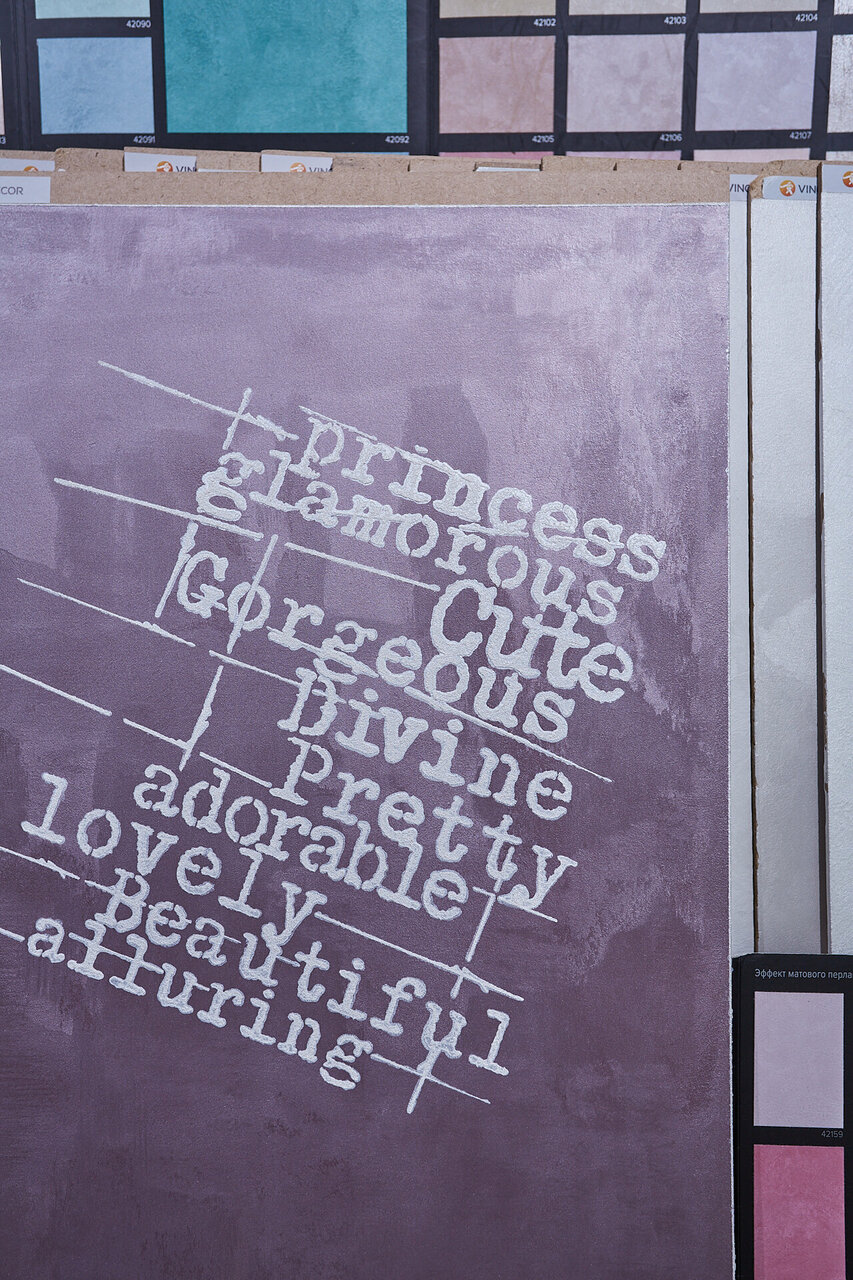 42090
42102
42103
42104
42091
42092
42105
42106
42107
VIN
VIN
COR
princess
glamorous
Cute
Gorgeous
Divine
Pretty
adorable
lovely
Beautiful
alluring
Эффект матового перла
42159